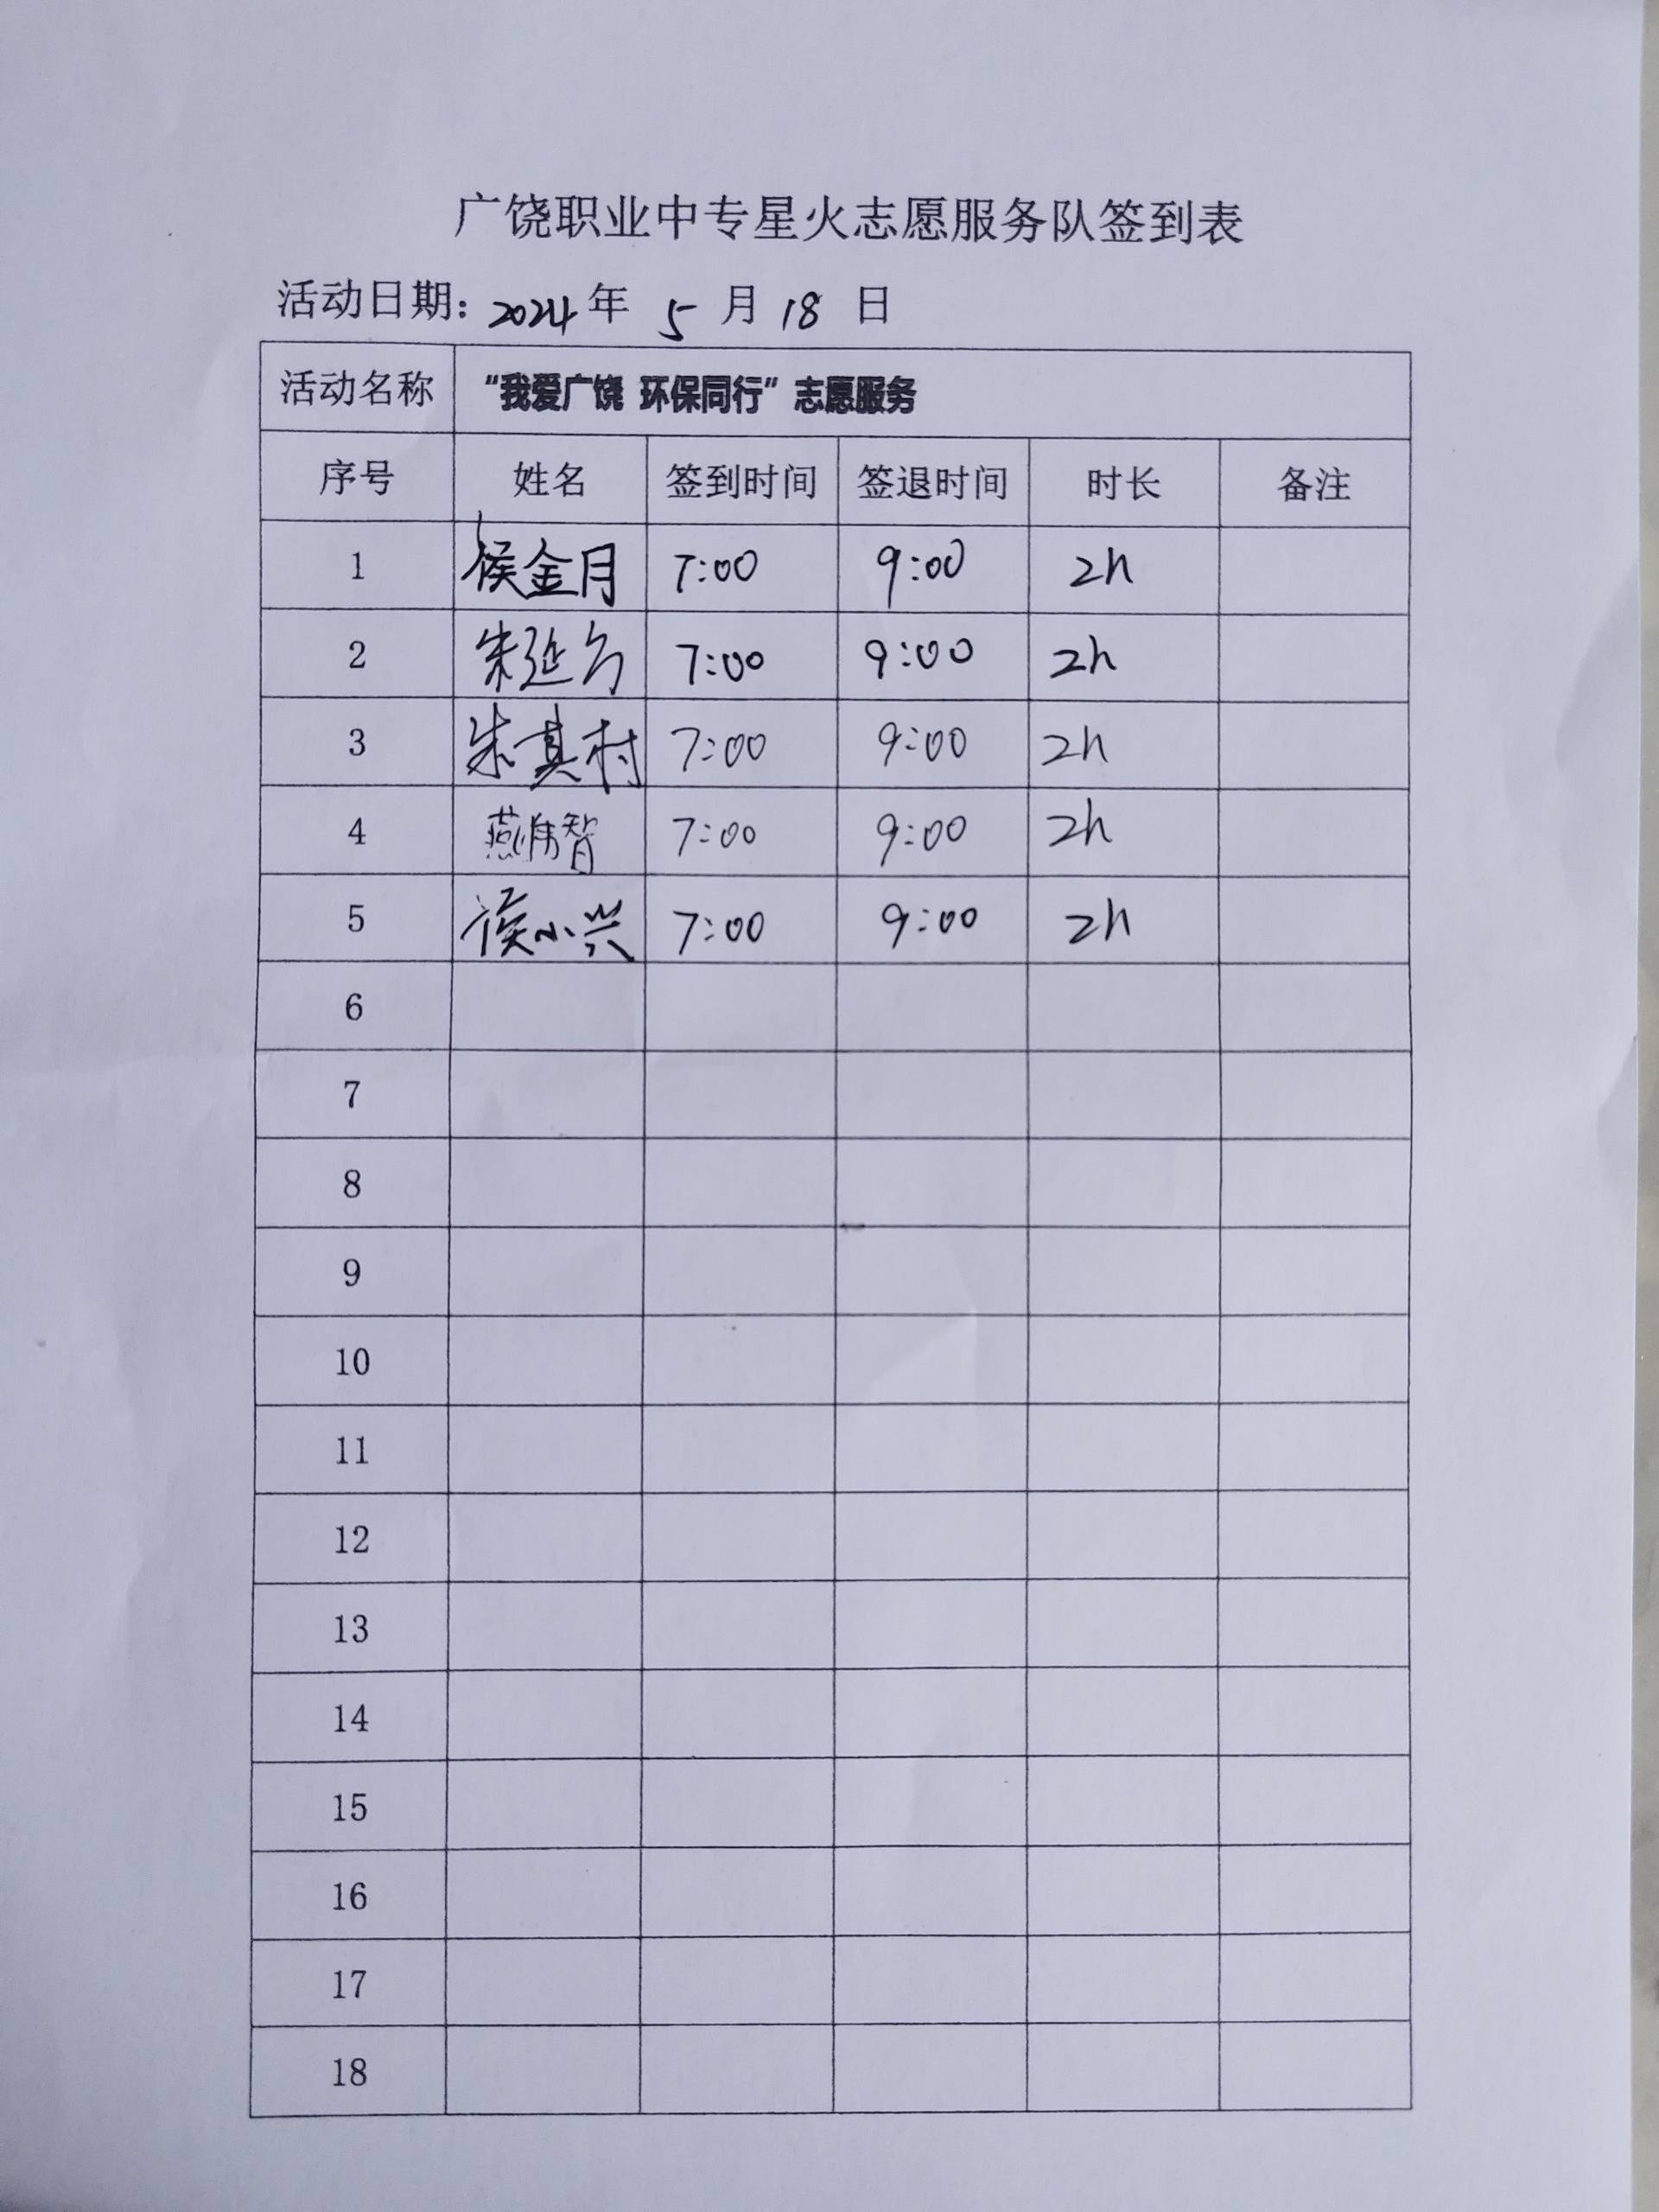 广饶职业中专星火志愿服务队签到表
活动日期：2024年 5 月 18 日
活动名称 “我爱广饶 环保同行”志愿服务
序号 姓名 签到时间 签退时间 时长 备注
1 侯金月 7:00 9:00 2h
2 朱延 7:00 9:00 2h
3 朱其村 7:00 9:00 2h
4 燕伟智 7:00 9:00 2h
5 侯小兴 7:00 9:00 2h
6
7
8
9
10
11
12
13
14
15
16
17
18